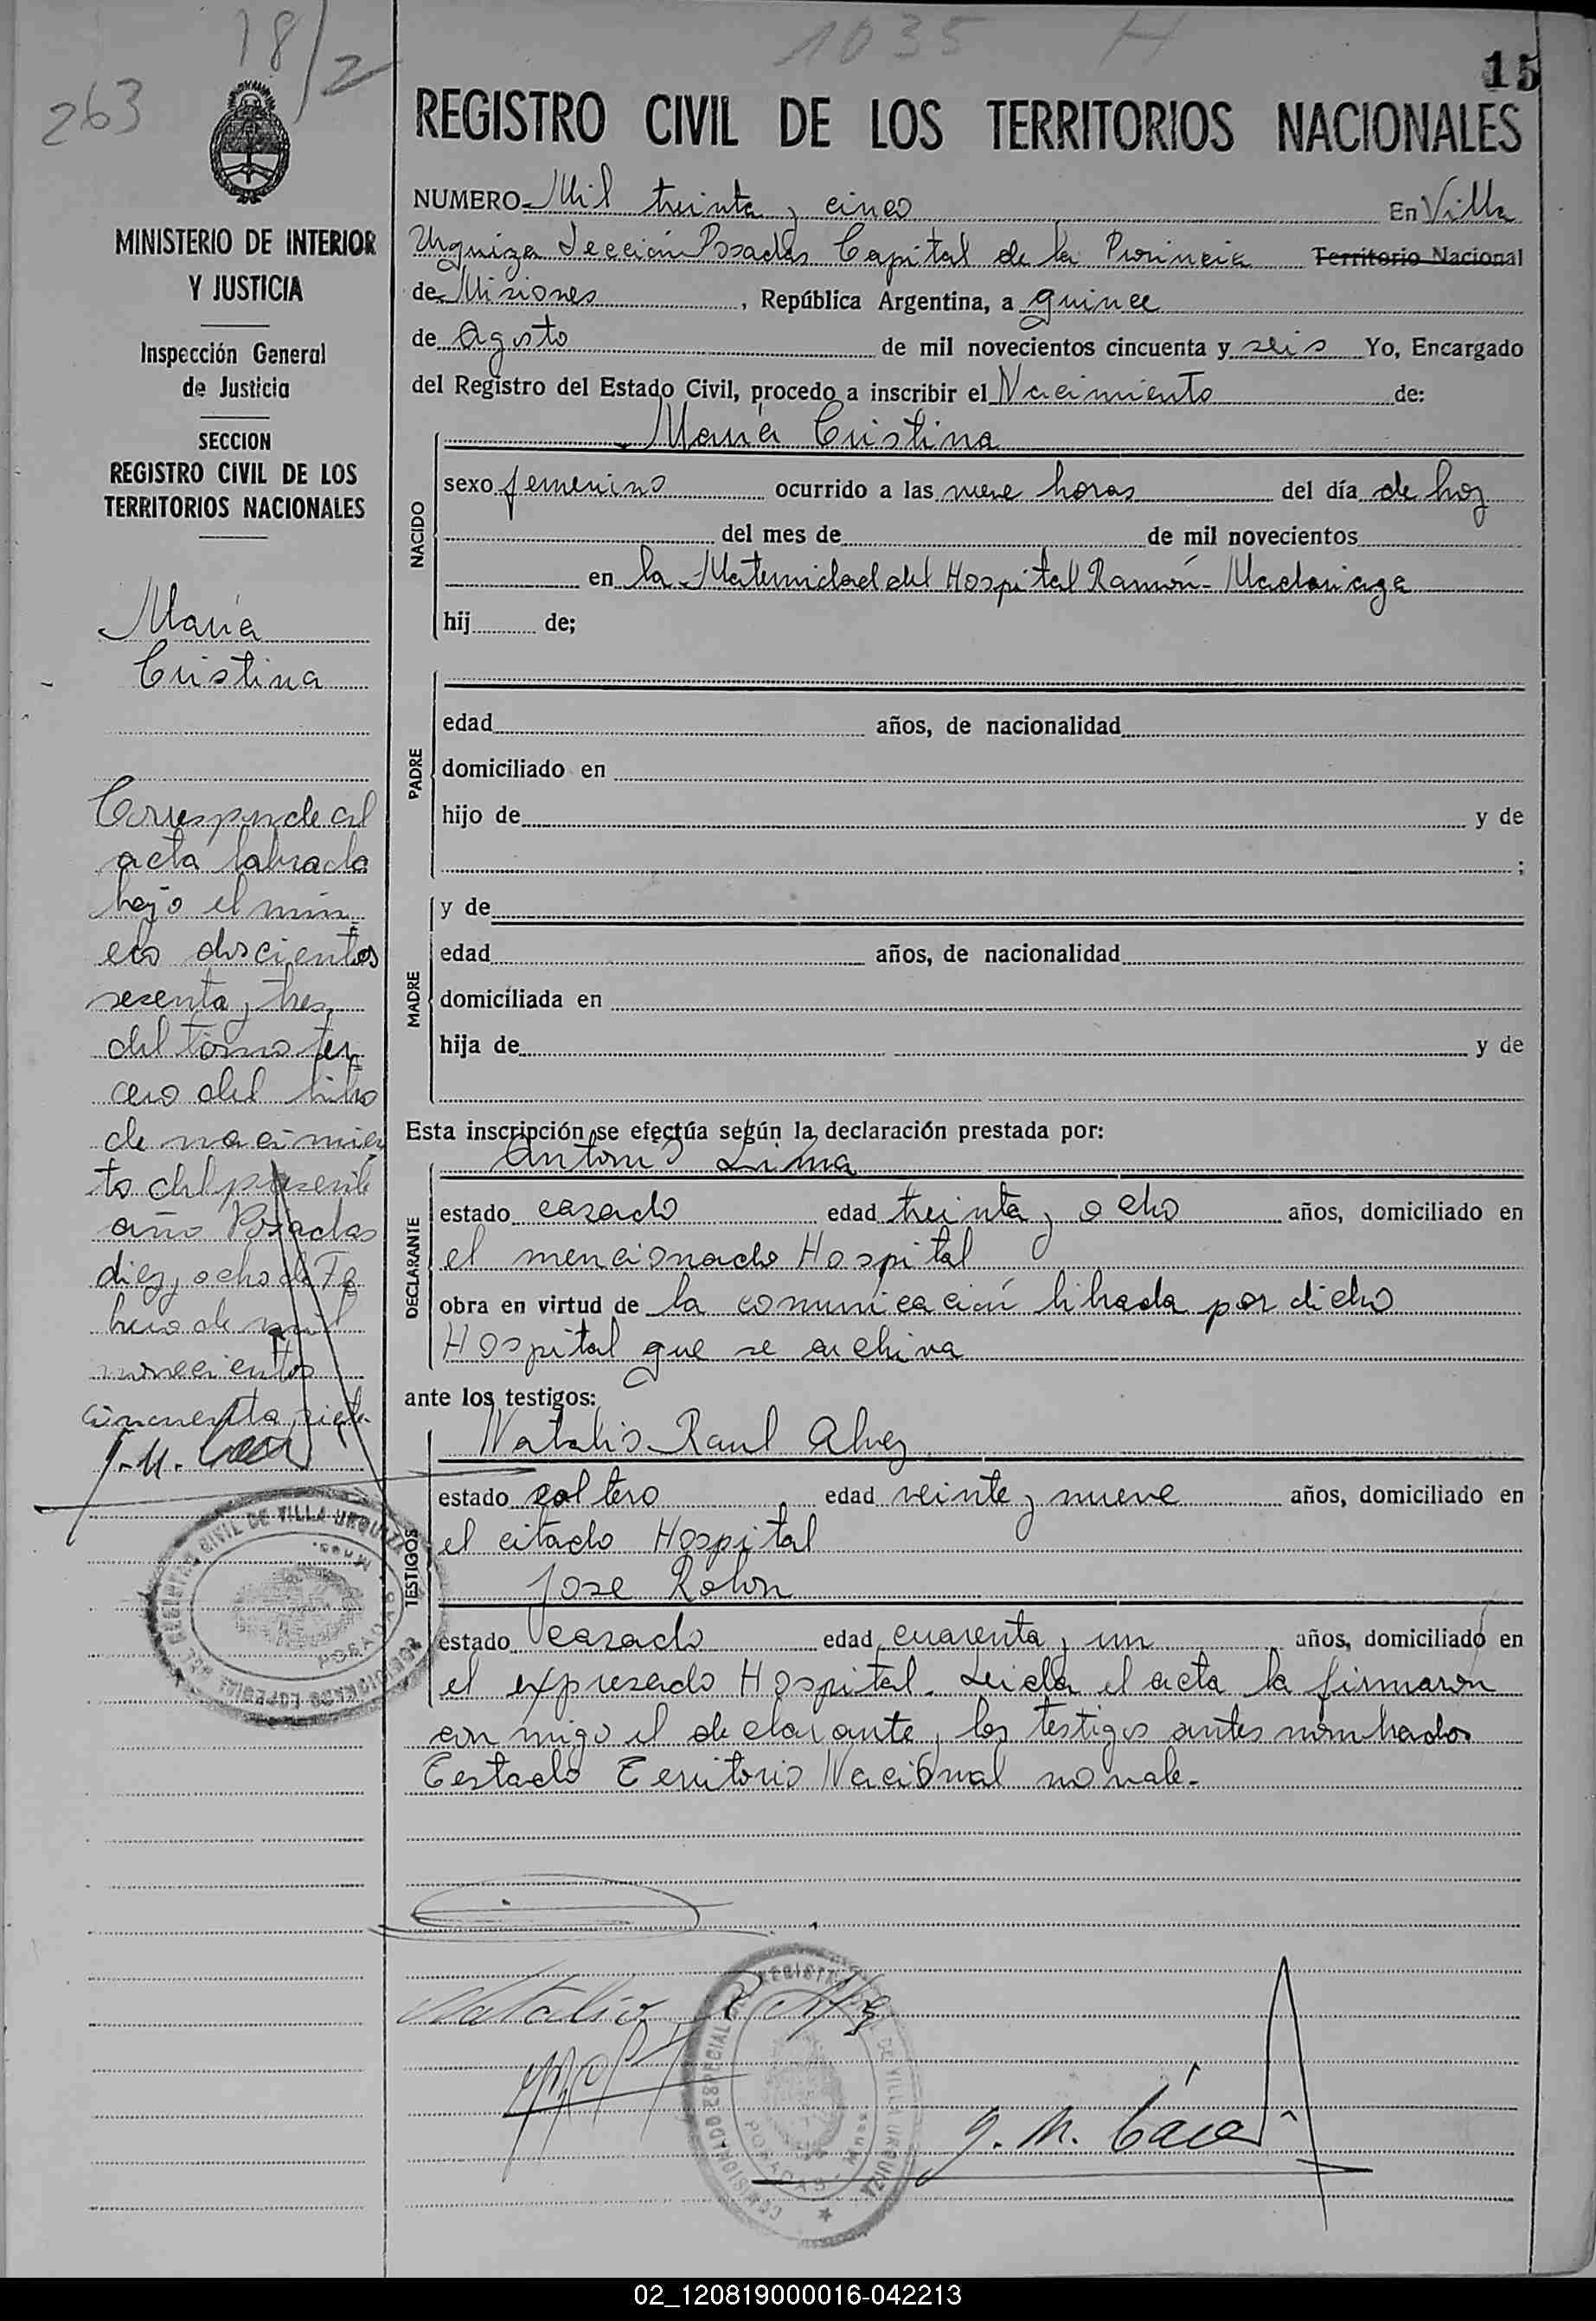 18/2
263
1035 H
15
REGISTRO CIVIL DE LOS TERRITORIOS NACIONALES
MINISTERIO DE INTERIOR
Y JUSTICIA
Inspección General
de Justicia
SECCION
REGISTRO CIVIL DE LOS
TERRITORIOS NACIONALES
María
Cristina
Corresponde al
acta labrada
bajo el núm
ero doscientos
sesenta y tres
del tomo ter
cero del libro
de nacimien
to del presente
año Posadas
diez y ocho de Fe
brero de mil
novecientos
cincuenta y siete
NUMERO Mil treinta y cinco En Villa
Urquiza Sección Posadas Capital de la Provincia Territorio Nacional
de Misiones, República Argentina, a quince
de Agosto de mil novecientos cincuenta y seis Yo, Encargado
del Registro del Estado Civil, procedo a inscribir el Nacimiento de:
María Cristina
NACIDO
sexo femenino ocurrido a las nueve horas del día de hoy
del mes de de mil novecientos
en la Maternidad del Hospital Ramón Madariaga
hij de;
PADRE
edad años, de nacionalidad
domiciliado en
hijo de y de
;
MADRE
y de
edad años, de nacionalidad
domiciliada en
hija de y de
Esta inscripción se efectúa según la declaración prestada por:
DECLARANTE
Antonio Lima
estado casado edad treinta y ocho años, domiciliado en
el mencionado Hospital
obra en virtud de la comunicación librada por dicho
Hospital que se archiva
ante los testigos:
TESTIGOS
Natalio Raul Alvez
estado soltero edad veinte y nueve años, domiciliado en
el citado Hospital
Jose Rolon
estado casado edad cuarenta y un años, domiciliado en
el expresado Hospital. Leida el acta la firmaron
con migo el declarante y los testigos antes nombrados
Testado Territorio Nacional no vale.
Natalio R Alvez
COMISIONADO ESPECIAL DEL REGISTRO CIVIL DE VILLA URQUIZA
POSADAS - Mnes.
02_120819000016-042213